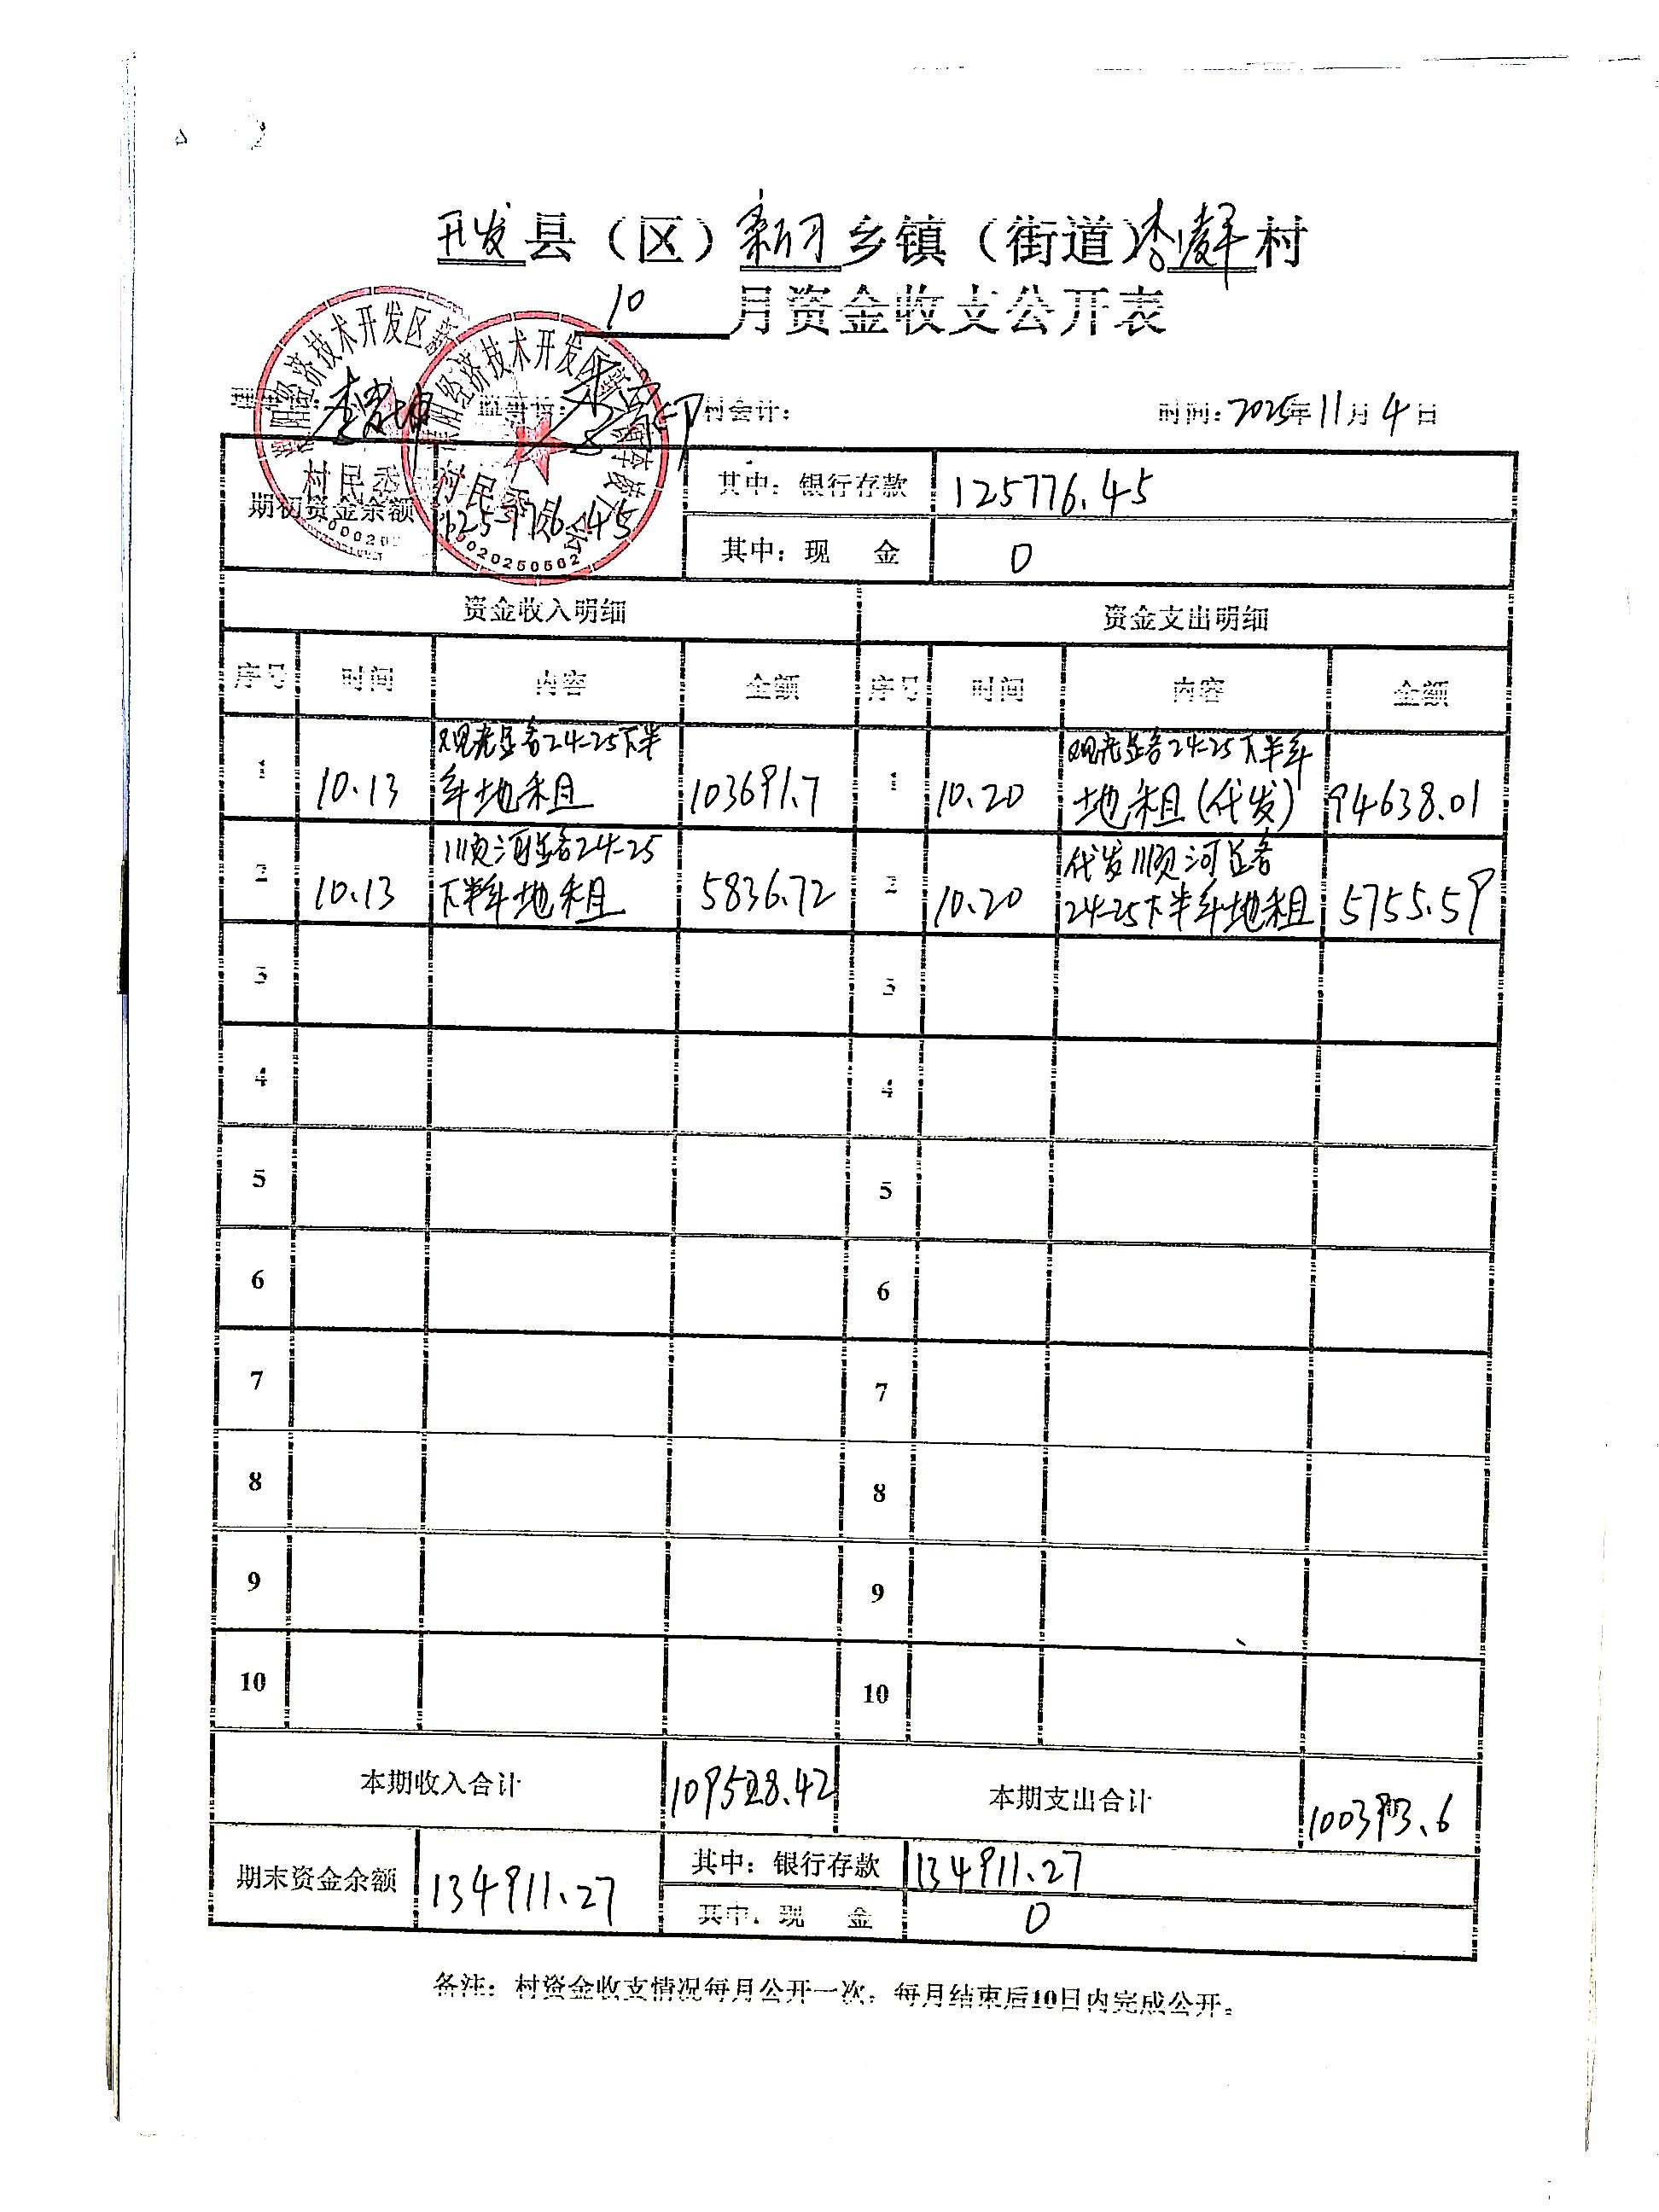 开发县（区）新习乡镇（街道）李凌平村
10月资金收支公开表
监督 时间：2025年11月4日
村会计：
期初资金余额 125776.45 其中：银行存款 125776.45
其中：现 金 0
村民委
阳经济技术开发区新
村民委员会
阳经济技术开发区新
020250502
资金收入明细 资金支出明细
序号 时间 内容 金额 序号 时间 内容 金额
1 10.13 观光路24-25下半年地租 103691.7 1 10.20 观光路24-25下半年地租(代发) 94638.01
2 10.13 顺河路24-25下半年地租 5836.72 2 10.20 代发顺河路24-25下半年地租 5755.59
3 3
4 4
5 5
6 6
7 7
8 8
9 9
10 10
本期收入合计 109528.42 本期支出合计 100393.6
期末资金余额 134911.27 其中：银行存款 134911.27
其中：现 金 0
备注：村资金收支情况每月公开一次，每月结束后10日内完成公开。